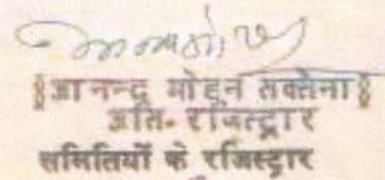 आनन्द मोहन सक्सेना
अति. रजिस्ट्रार
समितियों के रजिस्ट्रार